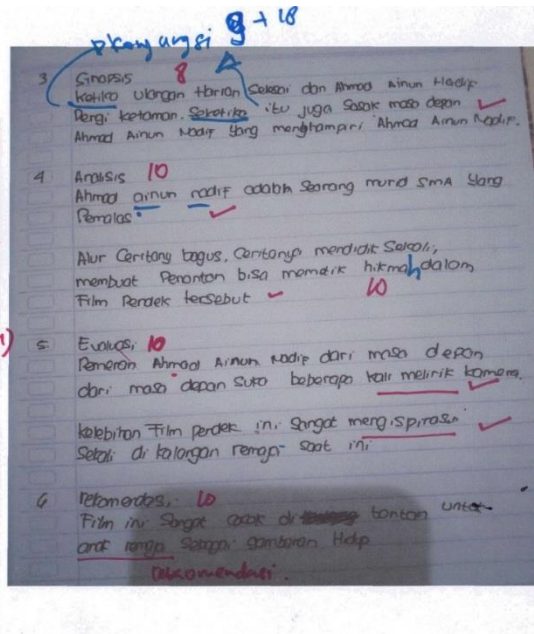 9 + 18
3 Sinopsis 8
Ketika ulangan Harian Selesai dan Ahmad Ainun Nadif
Pergi ketaman. Seketika itu juga Sosok masa depan
Ahmad Ainun Nadif yang menghampiri Ahmad Ainun Nadif.
4 Analisis 10
Ahmad ainun nadif adalah Seorang murid SMA yang
Pemalas.
Alur Ceritanya bagus, Ceritanya mendidik Sekali,
membuat Penonton bisa memetik hikmah dalam
Film Pendek tersebut 10
1) 5 Evaluasi 10
Pemeran Ahmad Ainun Nadif dari masa depan
dari masa depan Suka beberapa kali melirik kamera.
kelebihan Film Pendek ini Sangat mengispirasi
Sekali di kalangan remaja saat ini
6 rekomendasi. 10
Film ini Sangat cocok di tonton untuk
anak remaja Sebagai gambaran Hidup
rekomendasi.